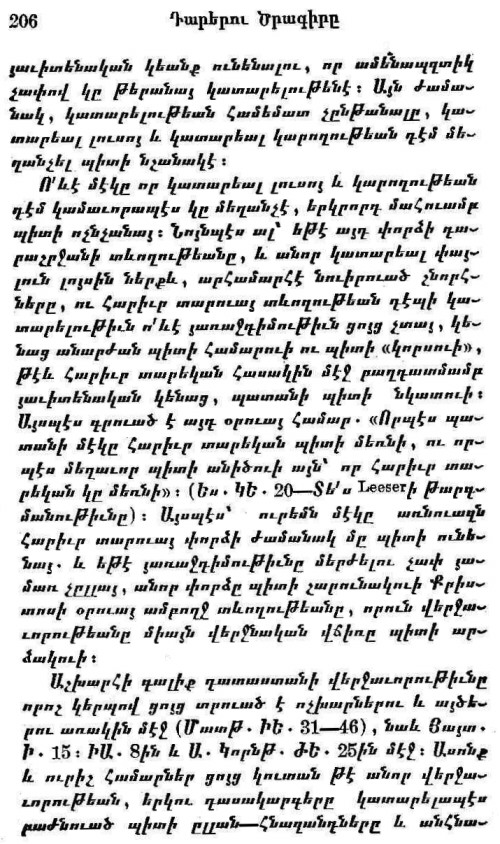 206 Դարերու Ծրագիրը
յաւիտենական կեանք ունենալու, որ ամենապզտիկ
չափով կը թերանայ կատարելութենէ։ Այն ժամա-
նակ, կատարելութեան համեմատ չընթանալը, կա-
տարեալ լուսոյ և կատարեալ կարողութեան դէմ մե-
ղանչել պիտի նշանակէ։
Ո՛ևէ մէկը որ կատարեալ լուսոյ և կարողութեան
դէմ կամաւորապէս կը մեղանչէ, երկրորդ մահուամբ
պիտի ոչնչանայ։ Նոյնպէս ալ՝ եթէ այդ փորձի դա-
րաշրջանի տևողութեանը, և անոր կատարեալ փայ-
լուն լոյսին ներքև, արհամարհէ նուիրուած շնորհ-
ները, ու հարիւր տարուայ տևողութեան դէպի կա-
տարելութիւն ո՛ևէ յառաջդիմութիւն ցոյց չտայ, կե-
նաց անարժան պիտի համարուի ու պիտի «կորսուի»,
թէև հարիւր տարեկան հասակին մէջ բաղդատմամբ
յաւիտենական կենաց, պատանի պիտի նկատուի։
Այսպէս գրուած է այդ օրուայ համար. «Որպէս պա-
տանի մէկը հարիւր տարեկան պիտի մեռնի, ու որ-
պէս մեղաւոր պիտի անիծուի այն՝ որ հարիւր տա-
րեկան կը մեռնի»։ (Ես. ԿԵ. 20—Տե՛ս Leeserի թարգ-
մանութիւնը)։ Այսպէս՝ ուրեմն մէկը առնուազն
հարիւր տարուայ փորձի ժամանակ մը պիտի ունե-
նայ. և եթէ յառաջդիմութիւնը մերժելու չափ յա-
մառ չըլլայ, անոր փորձը պիտի շարունակուի Քրիս-
տոսի օրուայ ամբողջ տևողութեանը, որուն վերջա-
ւորութեանը միայն վերջնական վճիռը պիտի ար-
ձակուի։
Աշխարհի գալիք դատաստանի վերջաւորութիւնը
որոշ կերպով ցոյց տրուած է ոչխարներու և այծե-
րու առակին մէջ (Մատթ. ԻԵ. 31—46), նաև Յայտ.
Ի. 15։ ԻԱ. 8ին և Ա. Կորնթ. ԺԵ. 25ին մէջ։ Ասոնք
և ուրիշ համարներ ցոյց կուտան թէ անոր վերջա-
ւորութեան, երկու դասակարգերը կատարելապէս
բաժնուած պիտի ըլլան—Հնազանդները և անհնա-